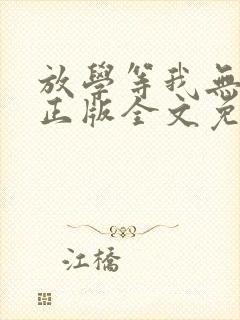 放學等我無
正版全文免
江橋